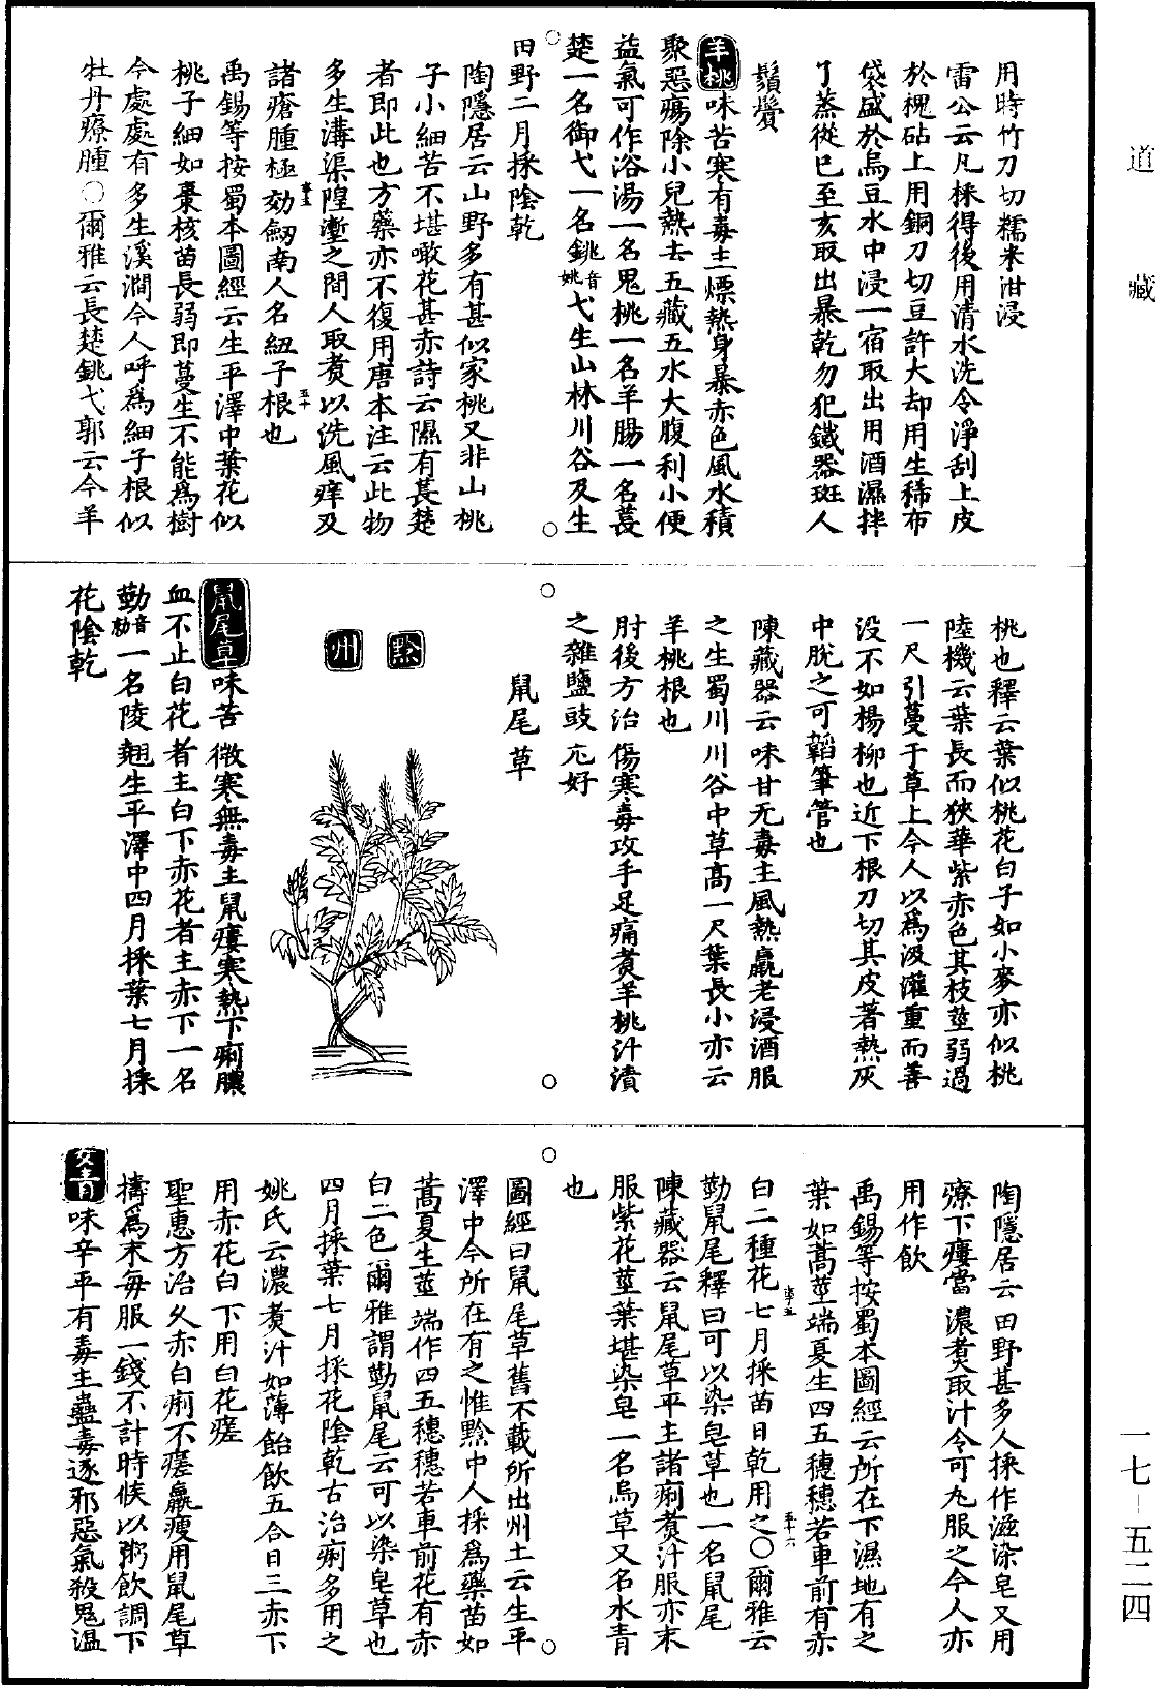 道藏
用時竹刀切糯米泔浸
雷公云凡採得後用清水洗令淨刮上皮
於槐砧上用銅刀切豆許大却用生稀布
袋盛於烏豆水中浸一宿取出用酒濕拌
了蒸從巳至亥取出暴乾勿犯鐵器斑人
鬚鬢
羊桃味苦寒有毒主熛熱身暴赤色風水積
聚惡瘍除小兒熱去五藏五水大腹利小便
益氣可作浴湯一名鬼桃一名羊腸一名萇
楚一名御弋一名銚音姚弋生山林川谷及生
田野二月採陰乾
陶隱居云山野多有甚似家桃又非山桃
子小細苦不堪噉花甚赤詩云隰有萇楚
者即此也方藥亦不復用唐本注云此物
多生溝渠隍壍之間人取煮以洗風痒及
諸瘡腫極効劒南人名紐子根也
禹錫等按蜀本圖經云生平澤中葉花似
桃子細如棗核苗長弱即蔓生不能為樹
今處處有多生溪澗今人呼為細子根似
牡丹療腫○爾雅云長楚銚弋郭云今羊
桃也釋云葉似桃花白子如小麥亦似桃
陸機云葉長而狹華紫赤色其枝莖弱過
一尺引蔓于草上今人以為汲灌重而善
没不如楊柳也近下根刀切其皮著熱灰
中脫之可韜筆管也
陳藏器云味甘无毒主風熱羸老浸酒服
之生蜀川川谷中草高一尺葉長小亦云
羊桃根也
肘後方治傷寒毒攻手足痛煮羊桃汁漬
之雜鹽豉尤好
鼠尾草
黔州
鼠尾草味苦微寒無毒主鼠瘻寒熱下痢膿
血不止白花者主白下赤花者主赤下一名
葝音勍一名陵翹生平澤中四月採葉七月採
花陰乾
陶隱居云田野甚多人採作滋染皂又用
療下瘻當濃煮取汁令可丸服之今人亦
用作飲
禹錫等按蜀本圖經云所在下濕地有之
葉如蒿莖端夏生四五穗穗若車前有赤
白二種花七月採苗日乾用之○爾雅云
葝鼠尾釋曰可以染皂草也一名鼠尾
陳藏器云鼠尾草平主諸痢煮汁服亦末
服紫花莖葉堪染皂一名烏草又名水青
也
圖經曰鼠尾草舊不載所出州土云生平
澤中今所在有之惟黔中人採為藥苗如
蒿夏生莖端作四五穗穗若車前花有赤
白二色爾雅謂葝鼠尾云可以染皂草也
四月採葉七月採花陰乾古治痢多用之
姚氏云濃煮汁如薄飴飲五合日三赤下
用赤花白下用白花瘥
聖惠方治久赤白痢不瘥羸瘦用鼠尾草
擣為末每服一錢不計時候以粥飲調下
女青味辛平有毒主蠱毒逐邪惡氣殺鬼溫
一七-五二四